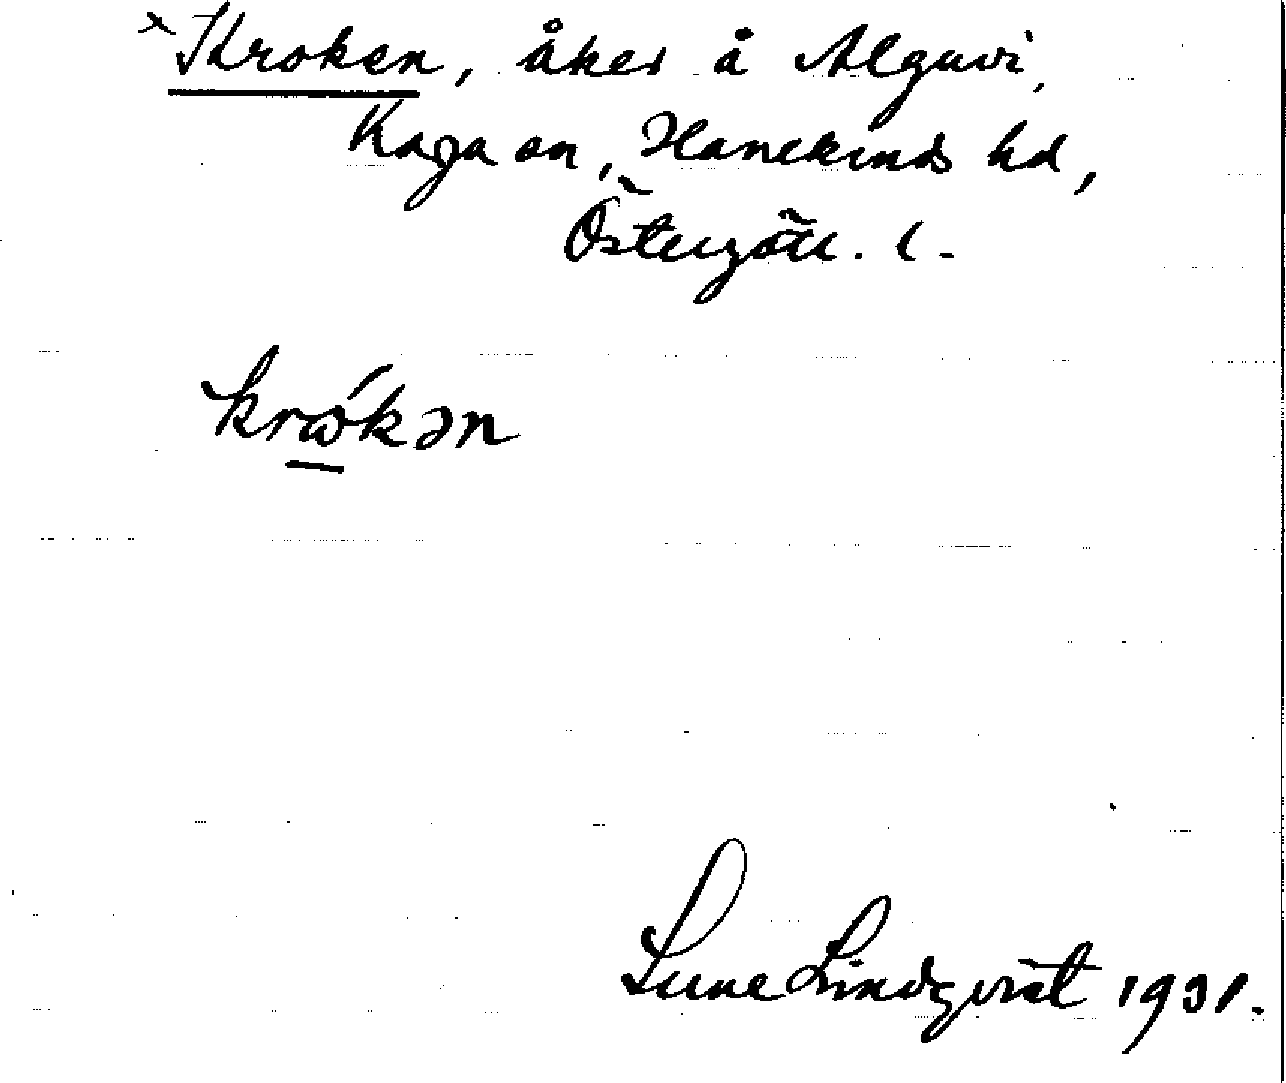 ˣKroken, åker å Alguvi,
Kaga sn, Hanekinds hd,
Östergötl. l.
krώ̲kən
Sune Lindqvist 1931.